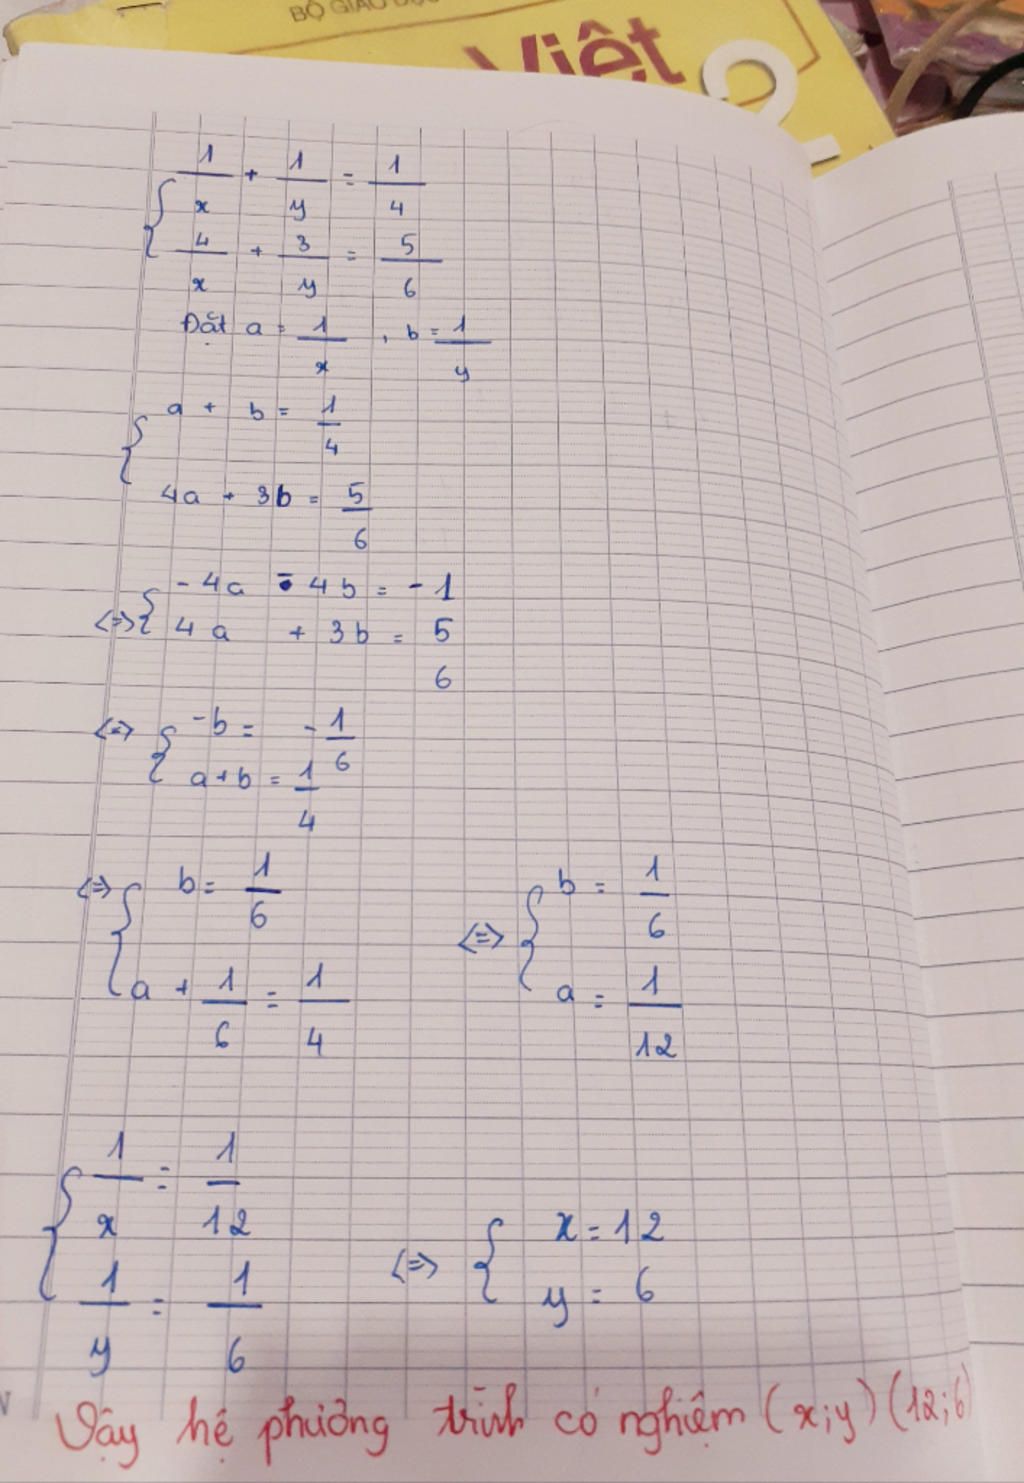 BỘ GIÁO DỤC
Việt
2
1/x + 1/y = 1/4
4/x + 3/y = 5/6
Đặt a = 1/x , b = 1/y
a + b = 1/4
4a + 3b = 5/6
<=> { -4a - 4b = -1
4a + 3b = 5 6
<=> { -b = -1/6
a+b = 1/4
<=> { b = 1/6
a + 1/6 = 1/4
<=> { b = 1/6
a = 1/12
{ 1/x = 1/12
1/y = 1/6
<=> { x = 12
y = 6
Vậy hệ phường trình có nghiệm (x;y) (12;6)